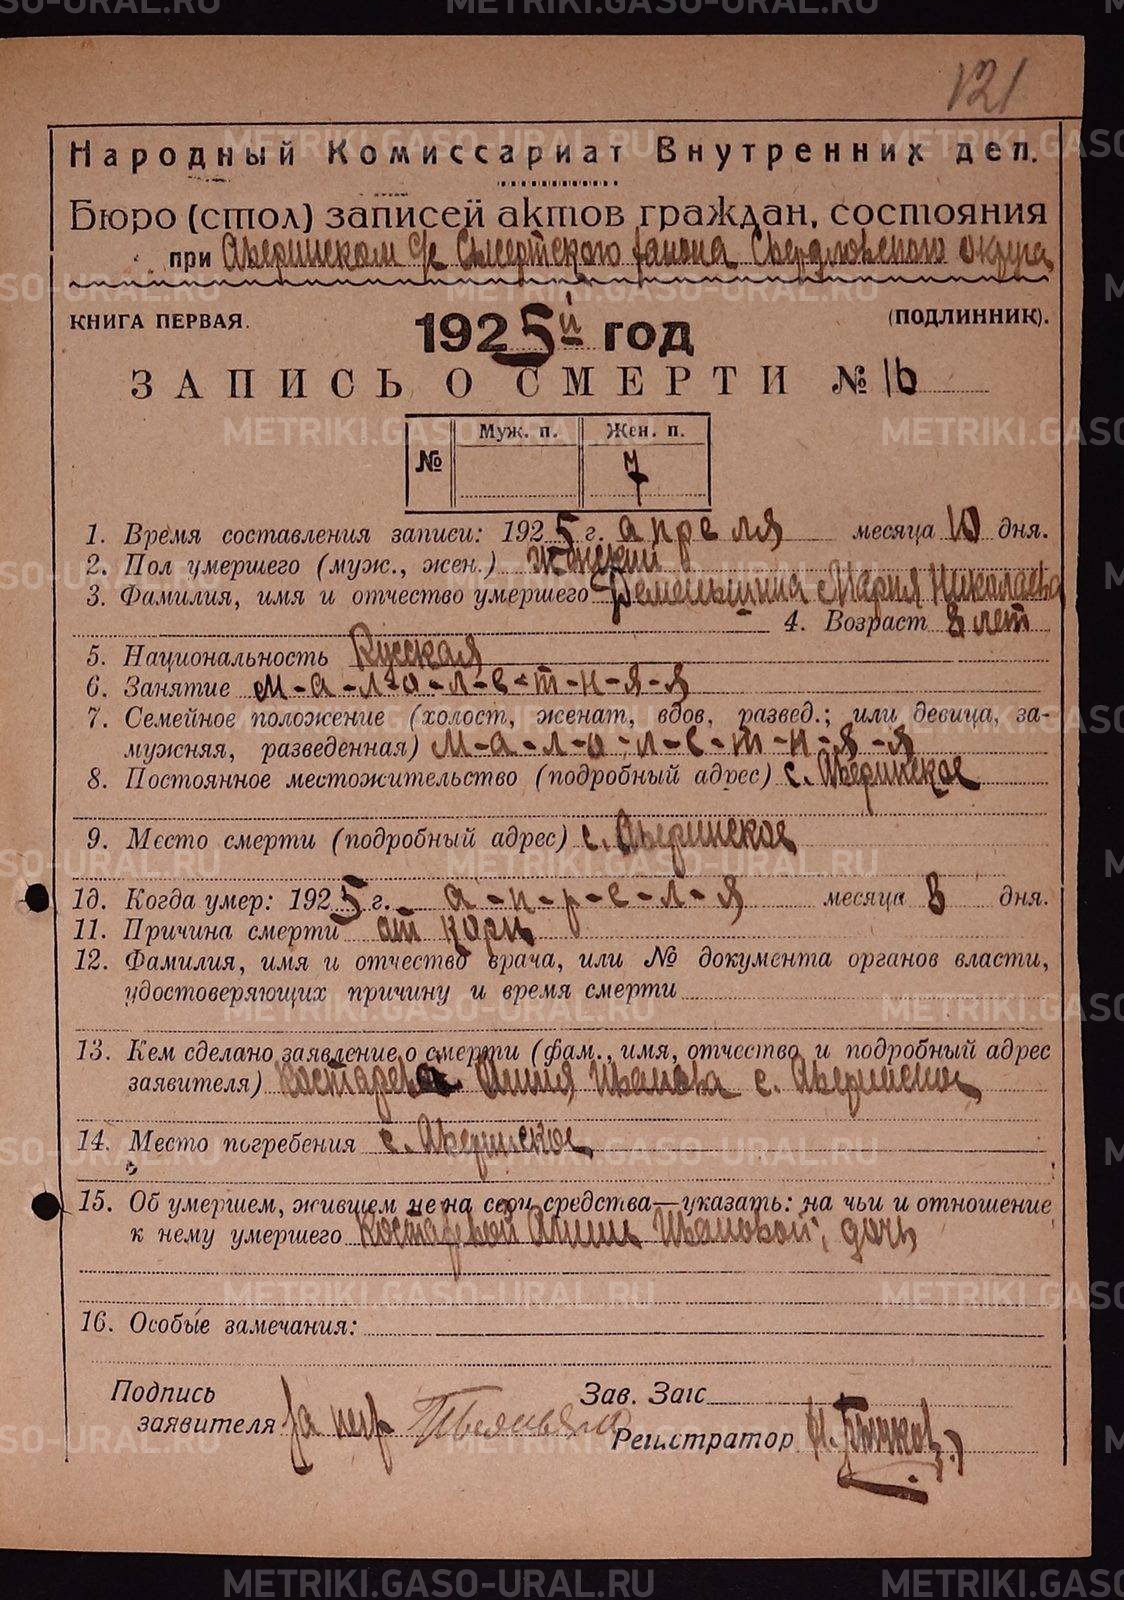 121
Народный Комиссариат Внутренних дел.
Бюро (стол) записей актов граждан. состояния
при Аверинском с/с Сысертского района Свердловского округа
КНИГА ПЕРВАЯ. 1925й год (ПОДЛИННИК).
ЗАПИСЬ О СМЕРТИ № 16
Муж. п. Жен. п.
№ 7
1. Время составления записи: 1925 г. апреля месяца 10 дня.
2. Пол умершего (муж., жен.) женский
3. Фамилия, имя и отчество умершего Мария Николаева
4. Возраст 8 лет
5. Национальность Русская
6. Занятие м-а-л-о-л-е-т-н-я-я
7. Семейное положение (холост, женат, вдов, развед.; или девица, за-
мужняя, разведенная) м-а-л-о-л-е-т-н-я-я
8. Постоянное местожительство (подробный адрес) с. Аверинское
9. Место смерти (подробный адрес) с. Аверинское
10. Когда умер: 1925 г. а-п-р-е-л-я месяца 8 дня.
11. Причина смерти от кори
12. Фамилия, имя и отчество врача, или № документа органов власти,
удостоверяющих причину и время смерти
13. Кем сделано заявление о смерти (фам., имя, отчество и подробный адрес
заявителя) Костарева Анна Иванова с. Аверинское
14. Место погребения с. Аверинское
15. Об умершем, жившем не на свои средства—указать: на чьи и отношение
к нему умершего Костаревой Анны Ивановой; дочь
16. Особые замечания:
Подпись Зав. Загс
заявителя за негр
Регистратор Н. Бычков
METRIKI.GASO-URAL.RU